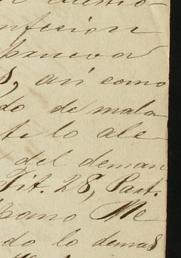 nfesion
s, asi como
do de mala
te lo ale
del deman
Tit. 28, Part.
bano Me
do lo demas